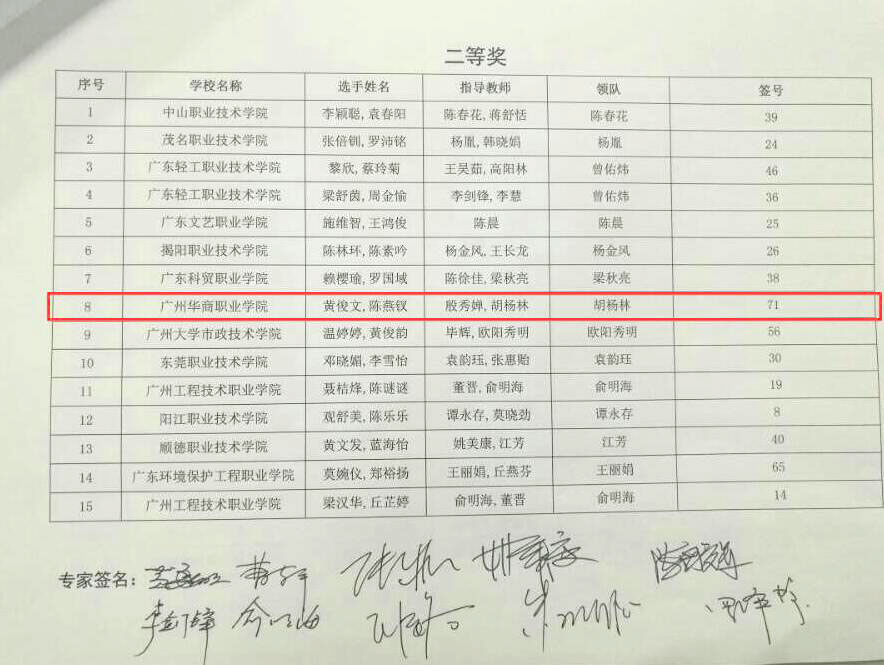 二等奖
序号 学校名称 选手姓名 指导教师 领队 签号
1 中山职业技术学院 李颖聪,袁春阳 陈春花,蒋舒恬 陈春花 39
2 茂名职业技术学院 张倍钏,罗沛铭 杨胤,韩晓娟 杨胤 24
3 广东轻工职业技术学院 黎欣,蔡玲菊 王吴茹,高阳林 曾佑炜 46
4 广东轻工职业技术学院 梁舒茵,周金愉 李剑锋,李慧 曾佑炜 36
5 广东文艺职业学院 施维智,王鸿俊 陈晨 陈晨 25
6 揭阳职业技术学院 陈林环,陈素吟 杨金风,王长龙 杨金风 26
7 广东科贸职业学院 赖樱瑜,罗国域 陈徐佳,梁秋亮 梁秋亮 38
8 广州华商职业学院 黄俊文,陈燕钗 殷秀婵,胡杨林 胡杨林 71
9 广州大学市政技术学院 温婷婷,黄俊韵 毕辉,欧阳秀明 欧阳秀明 56
10 东莞职业技术学院 邓晓媚,李雪怡 袁韵珏,张惠贻 袁韵珏 30
11 广州工程技术职业学院 聂桔烽,陈谜谜 董晋,俞明海 俞明海 19
12 阳江职业技术学院 观舒美,陈乐乐 谭永存,莫晓劲 谭永存 8
13 顺德职业技术学院 黄文发,蓝海怡 姚美康,江芳 江芳 40
14 广东环境保护工程职业学院 莫婉仪,郑裕扬 王丽娟,丘燕芬 王丽娟 65
15 广州工程技术职业学院 梁汉华,丘芷婷 俞明海,董晋 俞明海 14
专家签名: